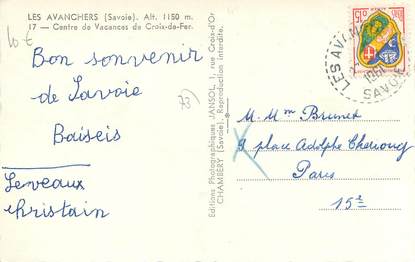 LES AVANCHERS (Savoie). Alt. 1150 m.
17 - Centre de Vacances de Croix-de-Fer.
10 €
Bon sonvenir
de Savoie
Baiseis
Leveaux
christain
73)
Editions Photographiques JANSOL, rue Croix-d'Or
CHAMBÉRY (Savoie). Reproduction interdite.
0,15
LES AV
SAVOIE
M. Mme Brunet
9 place Adolphe Cherioux
Paris
15e